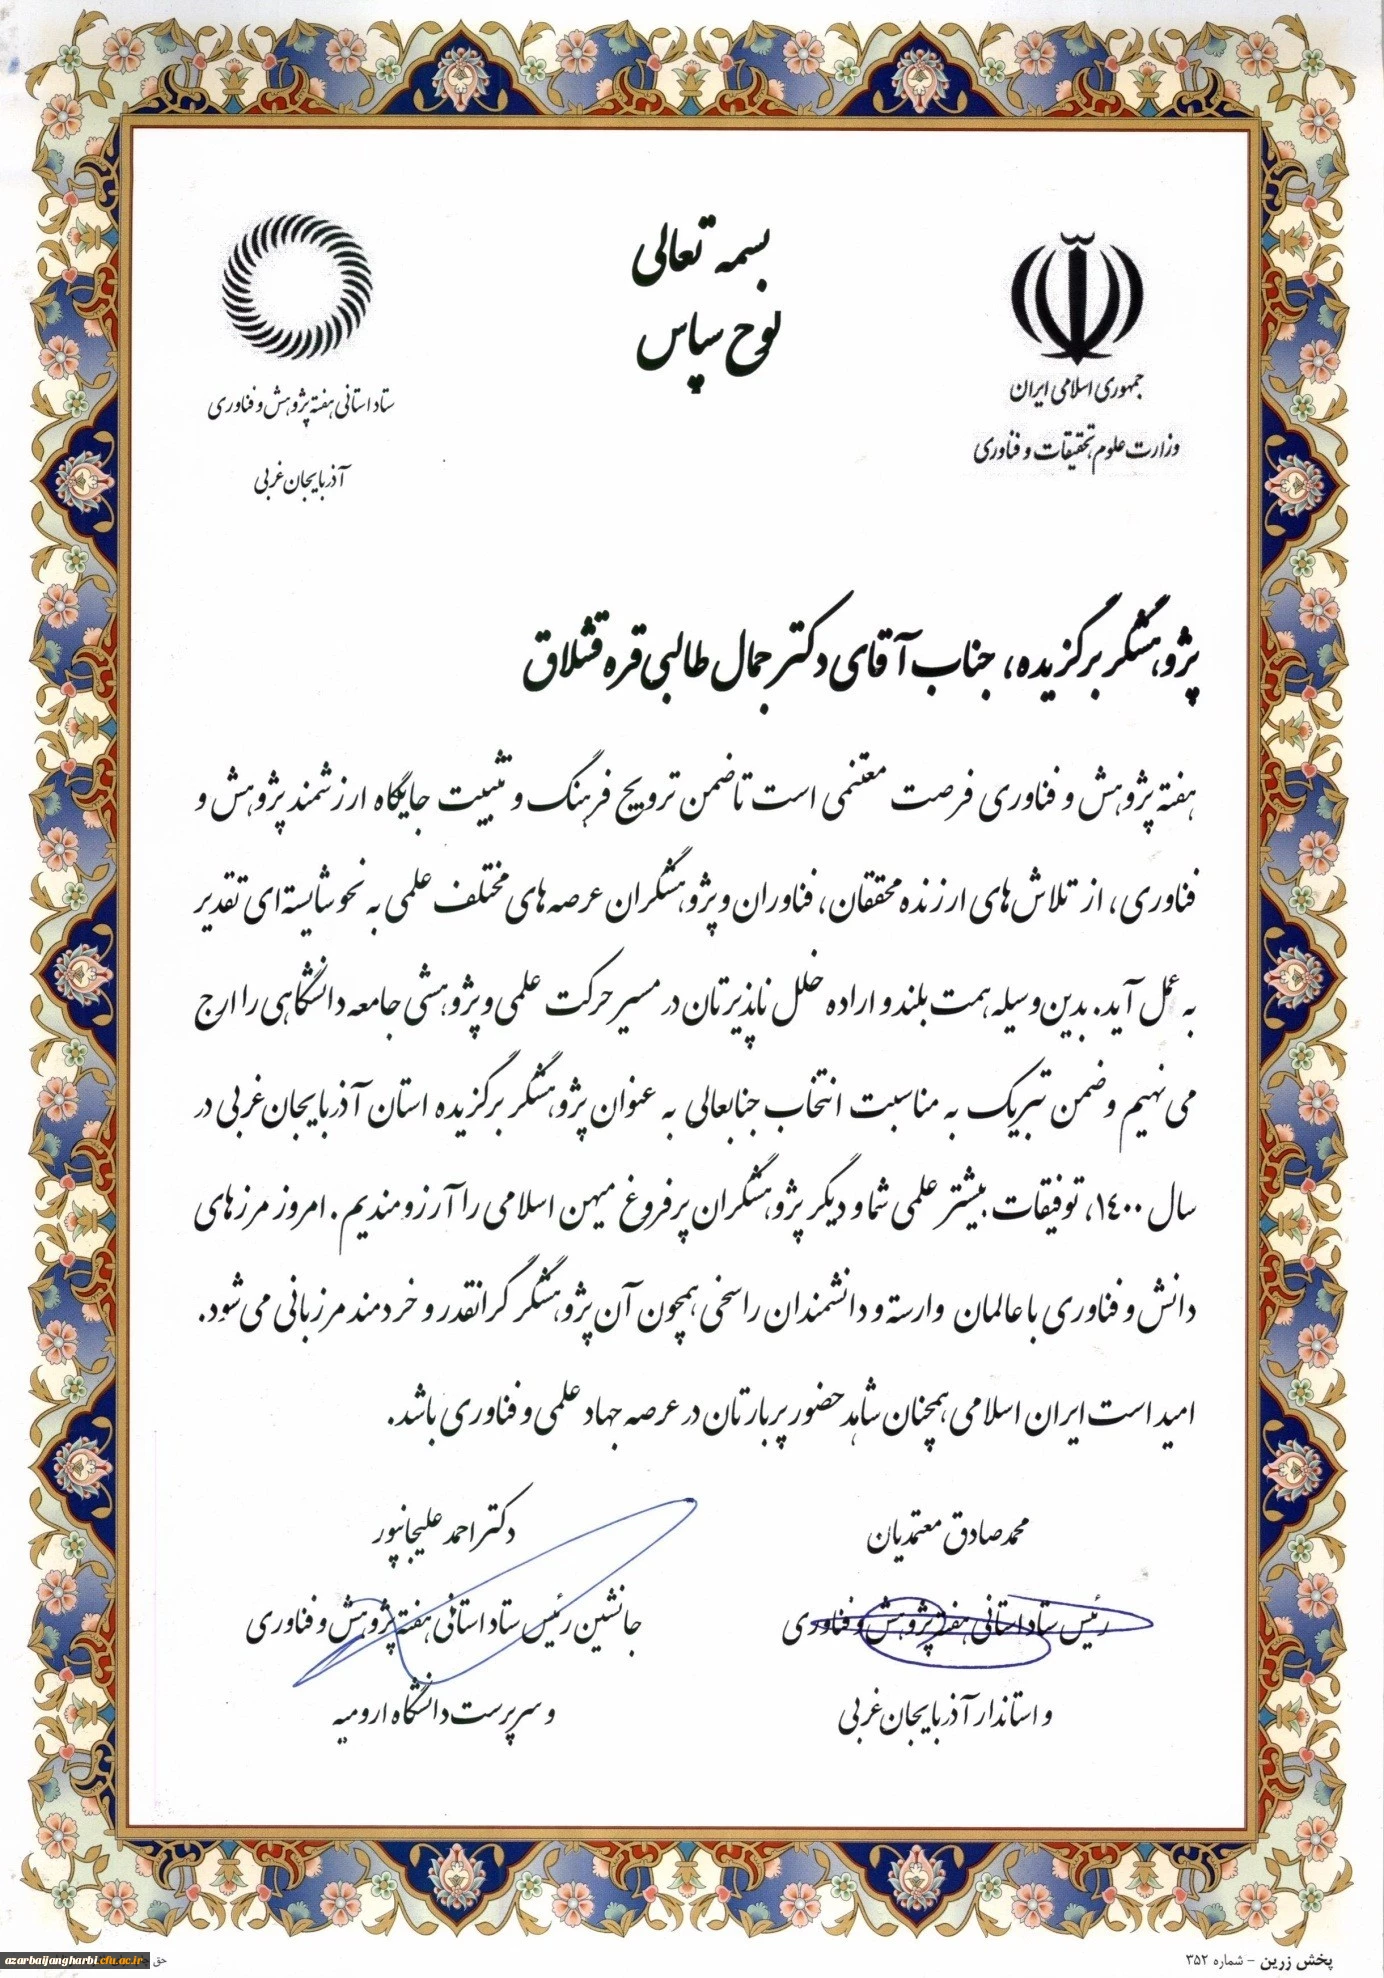 بسمه تعالی
لوح سپاس
جمهوری اسلامی ایران
وزارت علوم، تحقیقات و فناوری
ستاد استانی هفته پژوهش و فناوری
آذربایجان غربی
پژوهشگر برگزیده، جناب آقای دکتر جمال طالبی قره قشلاق
هفته پژوهش و فناوری فرصت مغتنمی است تا ضمن ترویج فرهنگ و تثبیت جایگاه ارزشمند پژوهش و
فناوری، از تلاش های ارزنده محققان، فناوران و پژوهشگران عرصه های مختلف علمی به نحو شایسته ای تقدیر
به عمل آید. بدین وسیله همت بلند و اراده خلل ناپذیرتان در مسیر حرکت علمی و پژوهشی جامعه دانشگاهی را ارج
می نهیم و ضمن تبریک به مناسبت انتخاب جنابعالی به عنوان پژوهشگر برگزیده استان آذربایجان غربی در
سال ۱۴۰۰، توفیقات بیشتر علمی شما و دیگر پژوهشگران پرفروغ میهن اسلامی را آرزومندیم. امروز مرزهای
دانش و فناوری با عالمان وارسته و دانشمندان راسخی همچون آن پژوهشگر گرانقدر و خردمند مرزبانی می شود.
امید است ایران اسلامی همچنان شاهد حضور پربارتان در عرصه جهاد علمی و فناوری باشد.
محمدصادق معتمدیان
رئیس ستاد استانی هفته پژوهش و فناوری
و استاندار آذربایجان غربی
دکتر احمد علیجانپور
جانشین رئیس ستاد استانی هفته پژوهش و فناوری
و سرپرست دانشگاه ارومیه
پخش زرین - شماره ۳۵۲
حق
azarbaijangharbi.cfu.ac.ir